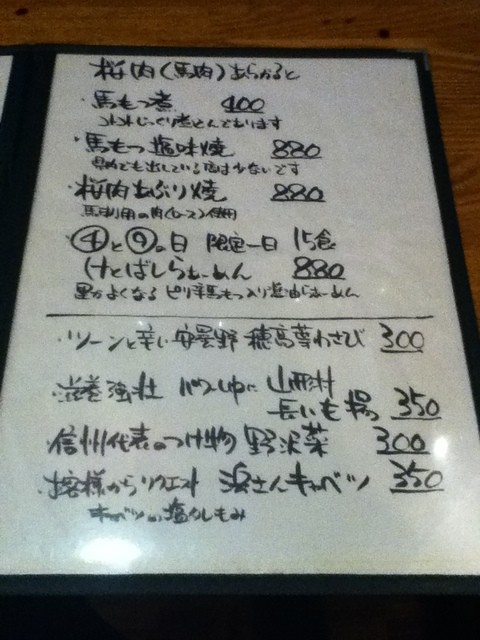 桜肉(馬肉)あらかると
・馬もつ煮 400
コトコトじっくり煮こんであります
・馬もつ塩味焼 880
県内でも出している店は少ないです
・桜肉あぶり焼 880
馬刺用の肉(ロース)使用
・④と⑨の日 限定一日 15食
けとばしらぁーめん 880
里がよくなる ピリ辛馬もつ入り塩らぁーめん
・ツーンと辛い 安曇野 穂高専わさび 300
・滋養強壮 パワーの山形村
長いも 350
・信州代表のつけ物 野沢菜 300
・お客様からリクエスト 浜さんキャベツ 350
キャベツの塩もみ